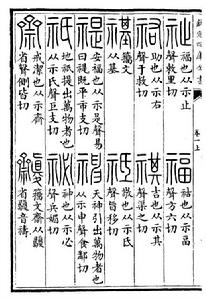 欽定四庫全書
卷一上
祉福也从示止
聲敕里切
福祜也从示畐
聲方六切
祐助也从示右
聲于救切
祺吉也从示其
聲渠之切
禥籀文
从基
祗敬也从示氐
聲旨移切
禔安福也从示是聲易
曰禔既平市支切
神天神引出萬物者也
从示申聲食鄰切
祇地祇提出萬物者也
从示氏聲巨支切
祕神也从示必
聲兵媚切
齋戒潔也从示齊
省聲側皆切
籀文齋从
省音禱